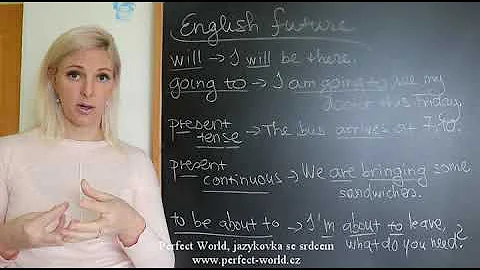 English future
will → I will be there.
going to → I am going to see my
doctor this Friday.
present
tense → The bus arrives at 7:40.
present
continuous → We are bringing some
sandwiches.
to be about to → I'm about to leave,
what do you need?
Perfect World, jazykovka se srdcem
www.perfect-world.cz